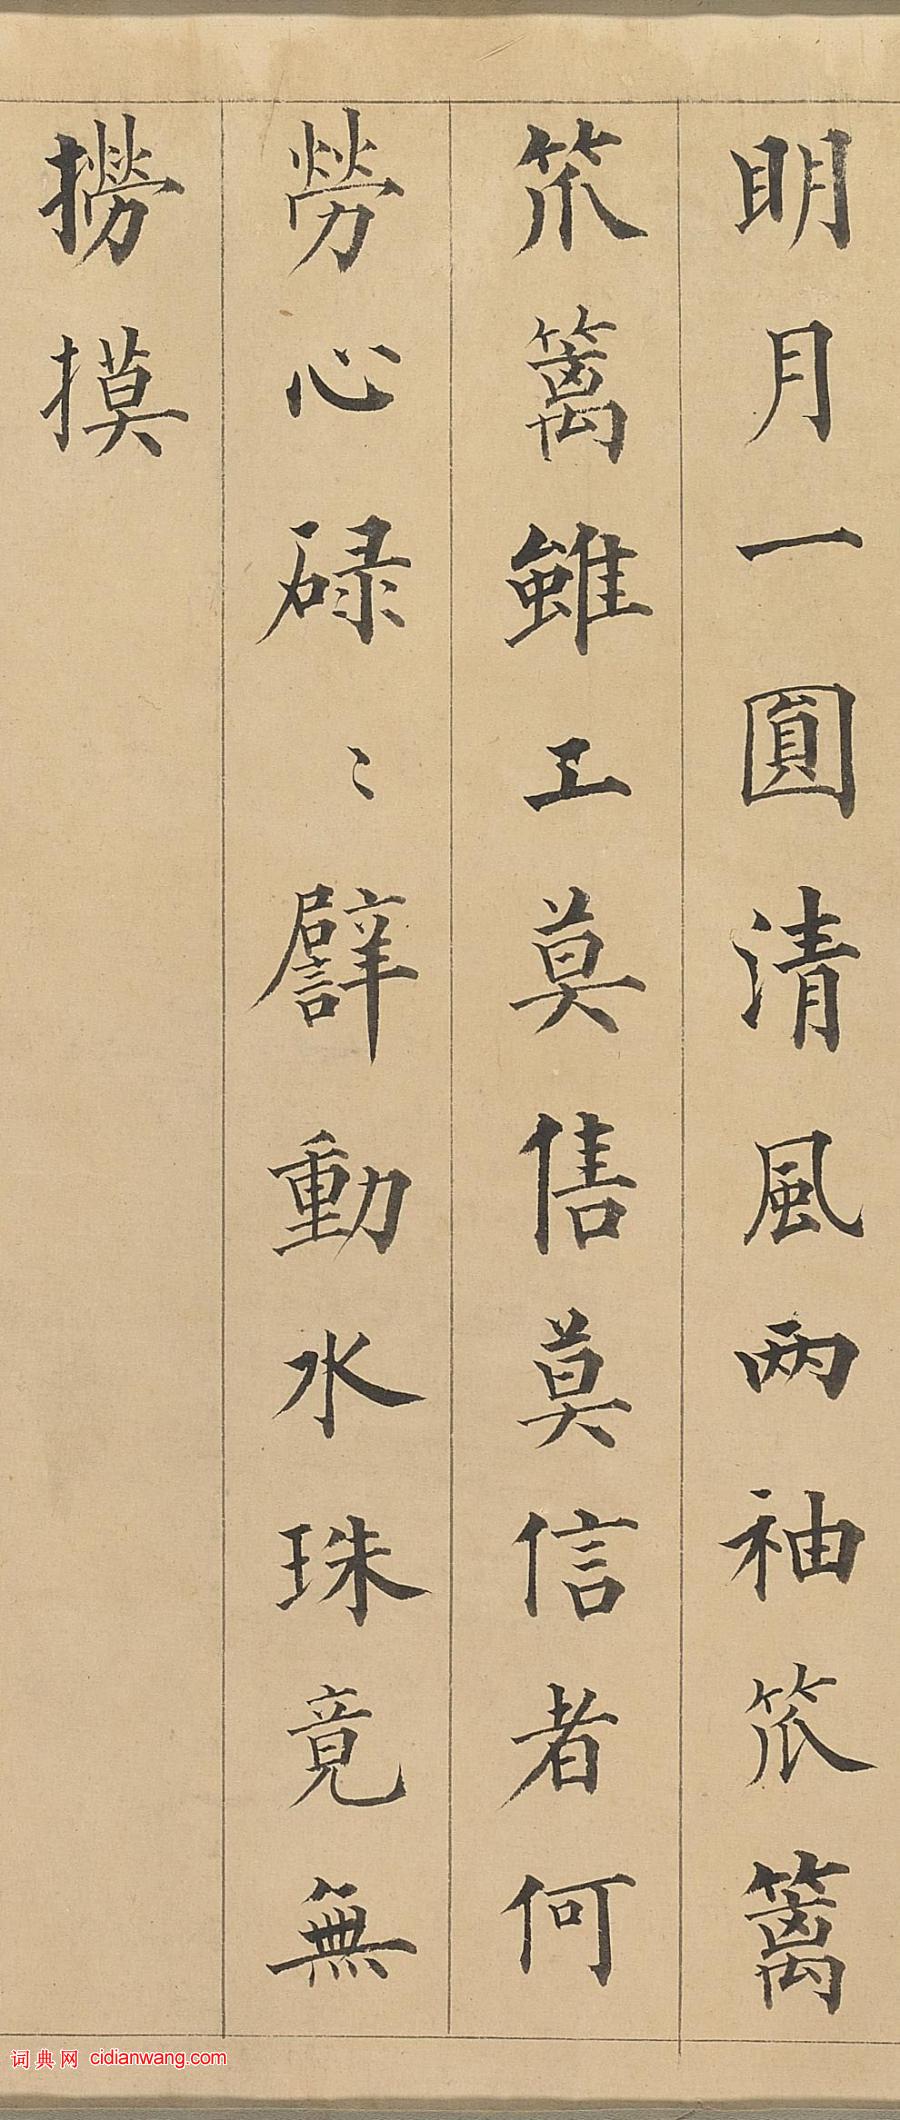 明月一圓清風两袖笊篱
笊篱雖工莫售莫信者何
勞心碌〻譬動水珠竟無
撈摸
词典网 cidianwang.com